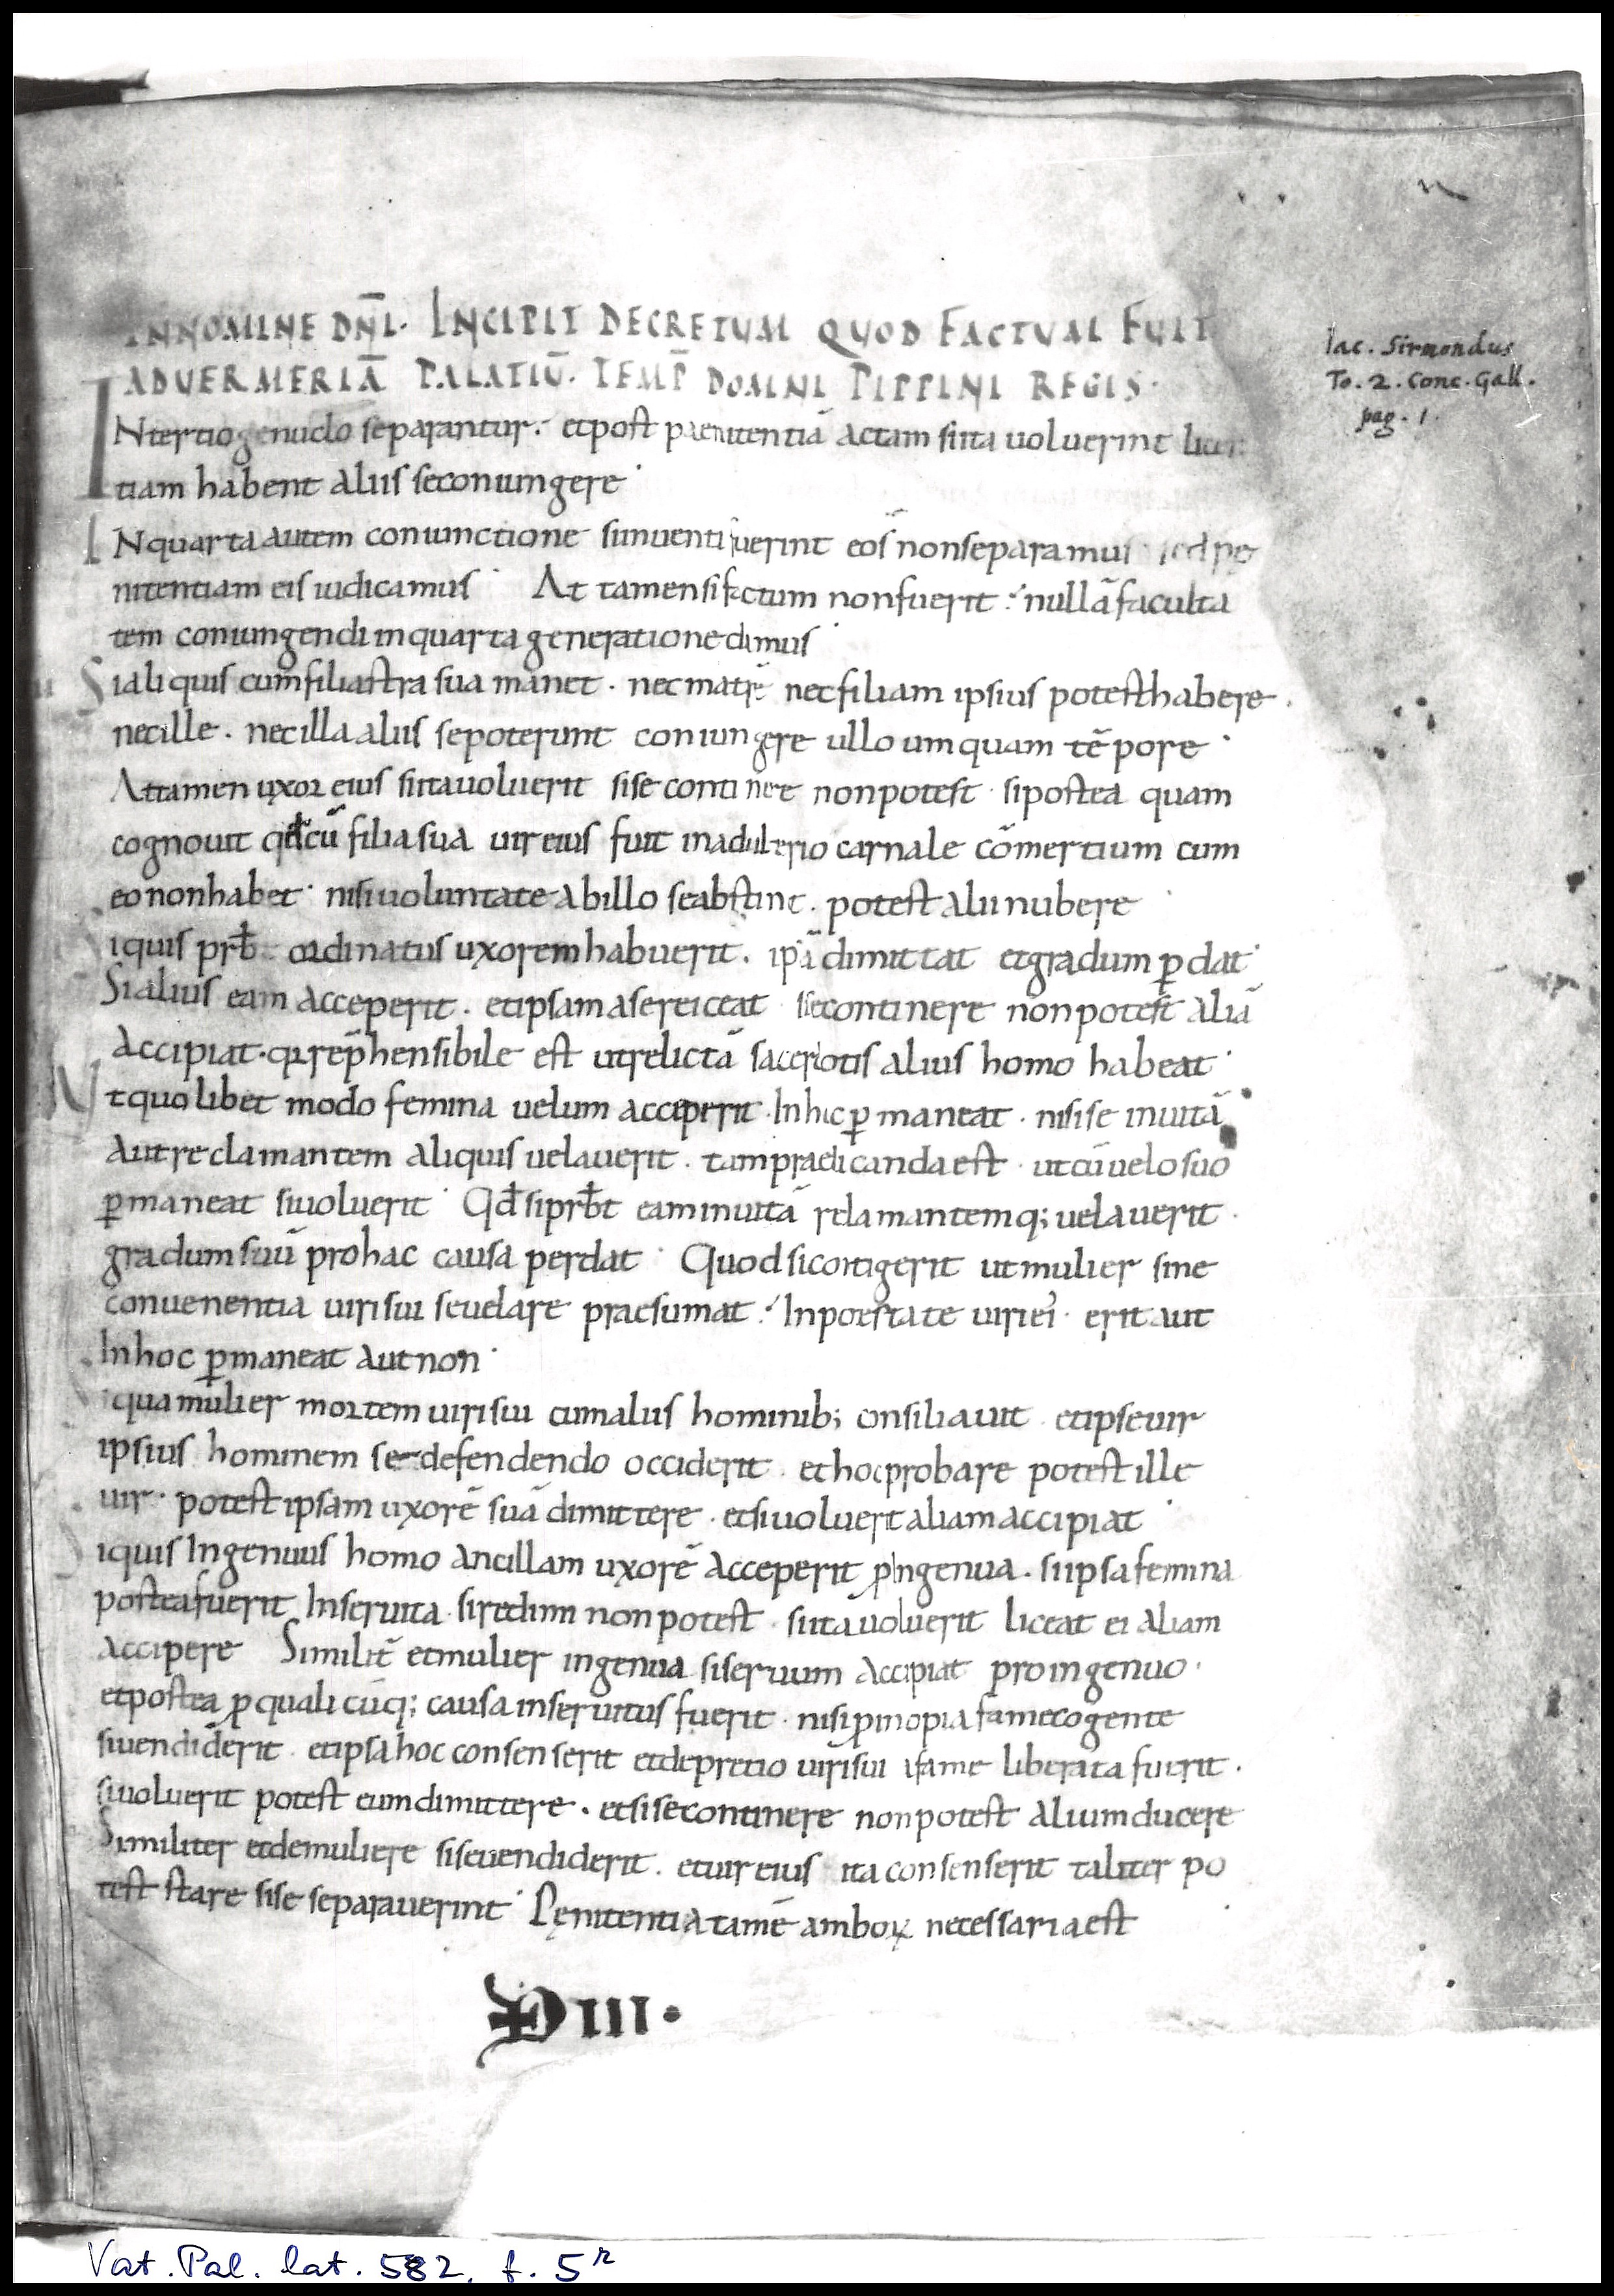 INNOMINE DNĪ. INCIPIT DECRETUM QUOD FACTUM FUIT
ADUERMERIĀ PALATIŪ. TEMP̄ DOMNI PIPPINI REGIS.
Iac. Sirmondus
To. 2. Conc. Gall.
pag. 1.
INtertio genuclo separantur. et post paenitentiā actam si ita uoluerint licen
tiam habent aliis se coniungere
IN quarta autem coniunctione si inuenti fuerint eos non separamus sed pe
nitentiam eis iudicamus At tamen si factum non fuerit nullā faculta
tem coniungendi in quarta generatione dimus
Si aliquis cum filiastra sua manet. nec matrē nec filiam ipsius potest habere.
nec ille. nec illa aliis se poterunt coniungere ullo umquam tēpore
Attamen uxor eius si ita uoluerit si se continere non potest si postea quam
cognouit qđ cū filia sua uir eius fuit in adulterio carnale cōmertium cum
eo non habet nisi uoluntate ab illo se abstinet. potest alii nubere
Si quis prb̄ ordinatus uxorem habuerit. ipsā dimittat et gradum ꝑdat
Si alius eam acceperit. et ipsam a se reiceat si se continere non potest aliā
accipiat. quia rep̄hensibile est ut relictā sacerdotis alius homo habeat
Ut quolibet modo femina uelum acceperit. In hic ꝑmaneat. nisi se inuitā
aut reclamantem aliquis uelauerit. tam praedicanda est ut cū uelo suo
ꝑmaneat si uoluerit Qđ si prb̄t eam inuitā relamantemq; uelauerit.
gradum suū pro hac causa perdat Quod si contigerit ut mulier sine
conuenentia uiri sui se uelare praesumat In potestate uiri ei' erit aut
In hoc ꝑmaneat aut non
Si qua mulier mortem uiri sui cum aliis hominib; consiliauit et ipse uir
ipsius hominem se defendendo occiderit. et hoc probare potest ille
uir. potest ipsam uxorē suā dimittere. et si uoluerit aliam accipiat
Si quis Ingenuus homo ancillam uxorē acceperit ꝓ Ingenua. si ipsa femina
postea fuerit Inseruita. si redimi non potest. si ita uoluerit liceat ei aliam
accipere Similit̄ et mulier ingenua si seruum accipiat pro ingenuo.
et postea ꝓ qualicūq; causa inseruitus fuerit. nisi ꝓ inopia fame cogente
si uendiderit et ipsa hoc consenserit et de pretio uiri sui a fame liberata fuerit.
si uoluerit potest eum dimittere. et si se continere non potest alium ducere
Similiter et de muliere si se uendiderit. et uir eius ita consenserit taliter po
test stare si se separauerint Pęnitentia tamē amboꝝ necessaria est
III.
Vat. Pal. lat. 582, f. 5r